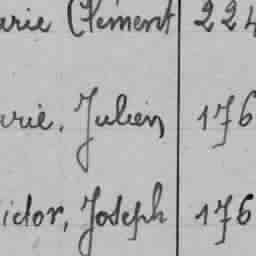 arie Clément 224
arie, Julien 176
ictor, Joseph 176